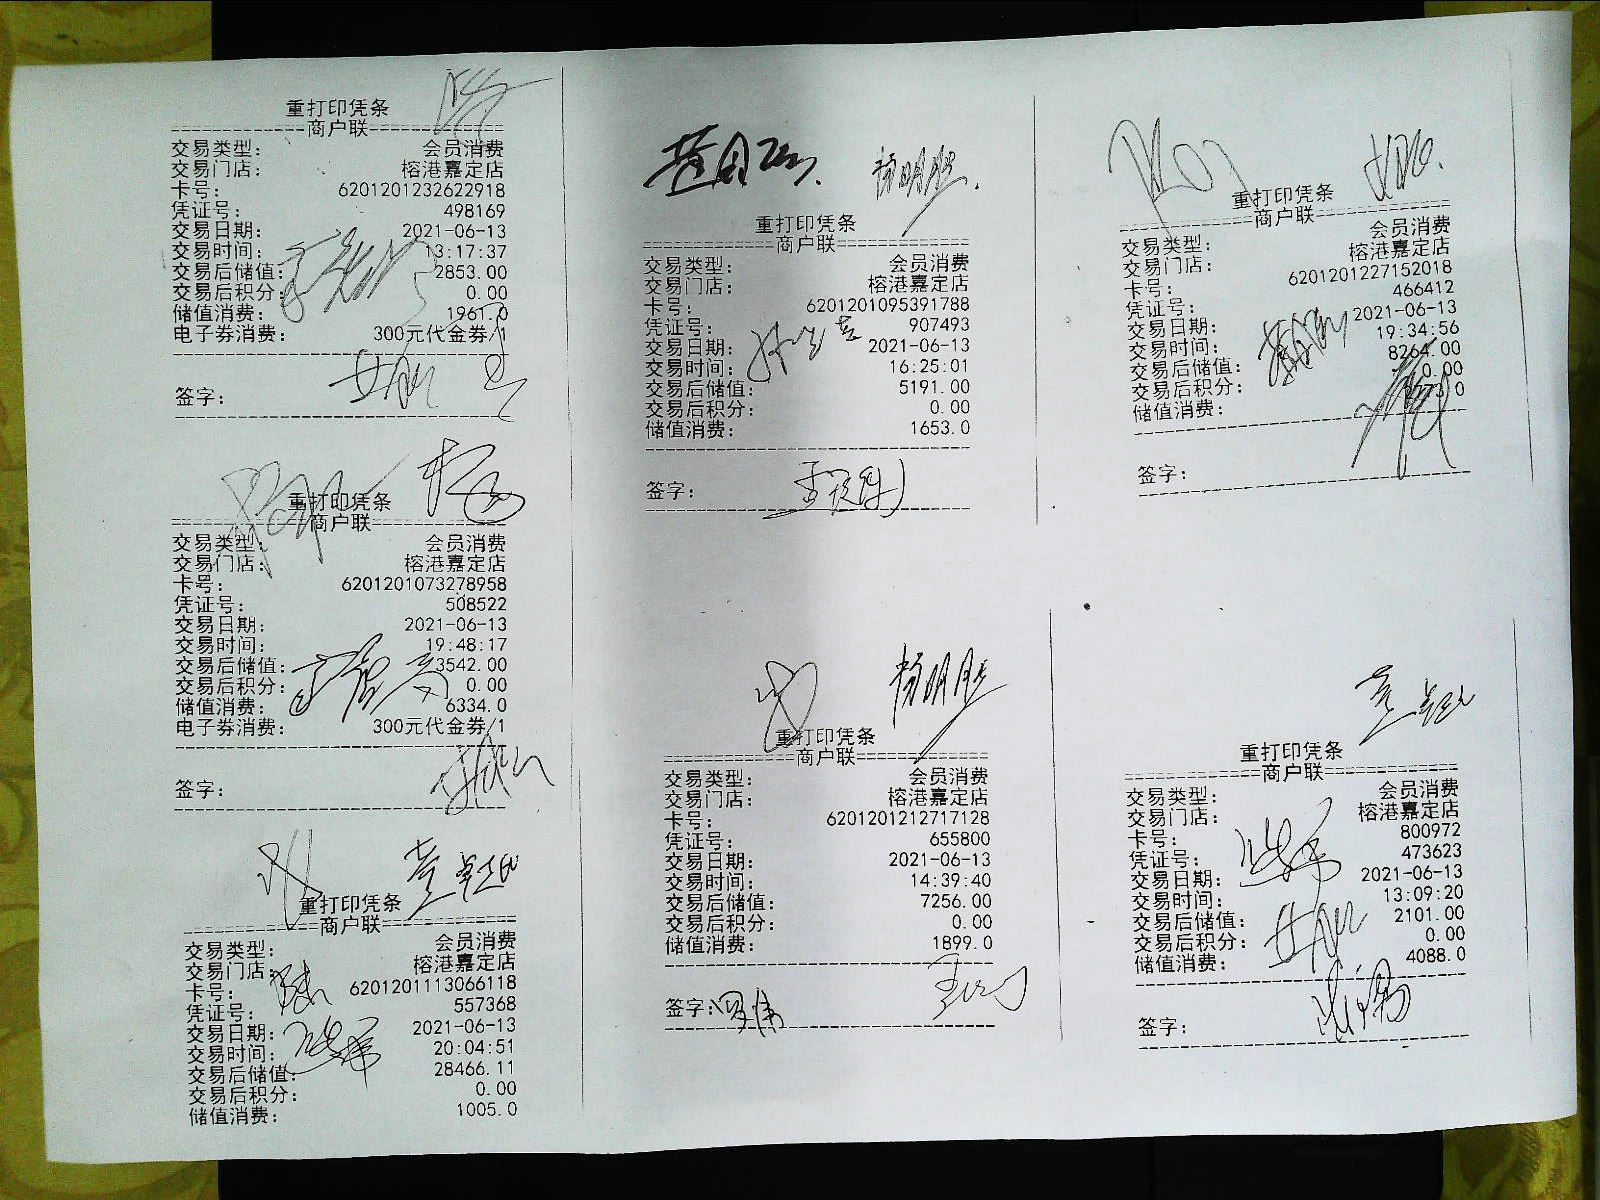 重打印凭条
==============商户联==============
交易类型: 会员消费
交易门店: 榕港嘉定店
卡号: 6201201232622918
凭证号: 498169
交易日期: 2021-06-13
交易时间: 13:17:37
交易后储值: 2853.00
交易后积分: 0.00
储值消费: 1961.0
电子券消费: 300元代金券/1
签字:
重打印凭条
==============商户联==============
交易类型: 会员消费
交易门店: 榕港嘉定店
卡号: 6201201073278958
凭证号: 508522
交易日期: 2021-06-13
交易时间: 19:48:17
交易后储值: 3542.00
交易后积分: 0.00
储值消费: 6334.0
电子券消费: 300元代金券/1
签字:
重打印凭条
==============商户联==============
交易类型: 会员消费
交易门店: 榕港嘉定店
卡号: 6201201113066118
凭证号: 557368
交易日期: 2021-06-13
交易时间: 20:04:51
交易后储值: 28466.11
交易后积分: 0.00
储值消费: 1005.0
杨明胜.
重打印凭条
==============商户联==============
交易类型: 会员消费
交易门店: 榕港嘉定店
卡号: 6201201095391788
凭证号: 907493
交易日期: 2021-06-13
交易时间: 16:25:01
交易后储值: 5191.00
交易后积分: 0.00
储值消费: 1653.0
签字:
杨明胜
重打印凭条
==============商户联==============
交易类型: 会员消费
交易门店: 榕港嘉定店
卡号: 6201201212717128
凭证号: 655800
交易日期: 2021-06-13
交易时间: 14:39:40
交易后储值: 7256.00
交易后积分: 0.00
储值消费: 1899.0
签字:
重打印凭条
==============商户联==============
交易类型: 会员消费
交易门店: 榕港嘉定店
卡号: 6201201227152018
凭证号: 466412
交易日期: 2021-06-13
交易时间: 19:34:56
交易后储值: 8264.00
交易后积分: 0.00
储值消费:
签字:
重打印凭条
==============商户联==============
交易类型: 会员消费
交易门店: 榕港嘉定店
卡号: 800972
凭证号: 473623
交易日期: 2021-06-13
交易时间: 13:09:20
交易后储值: 2101.00
交易后积分: 0.00
储值消费: 4088.0
签字: